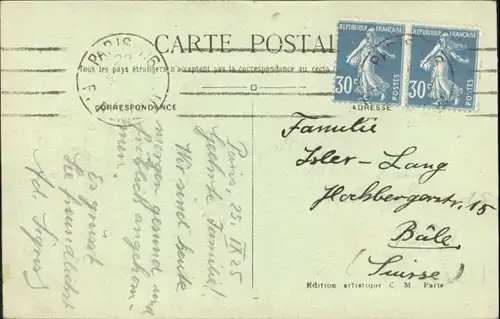 CARTE POSTALE
Tous les pays étrangers n'acceptent pas la correspondance au recto
CORRESPONDANCE
ADRESSE
PARIS
REPUBLIQUE FRANÇAISE
30c
REPUBLIQUE FRANÇAISE
30c
Paris, 25. IX 25
Geehrte Familie!
Wir sind heute
morgen gesund und
fröhlich angekom-
men.
Es grüsst
Sie freundlichst
Ad.
Familie
Isler-Lang
Hochbergerstr. 
Bâle
(Suisse)
Edition artistique C. M. Paris